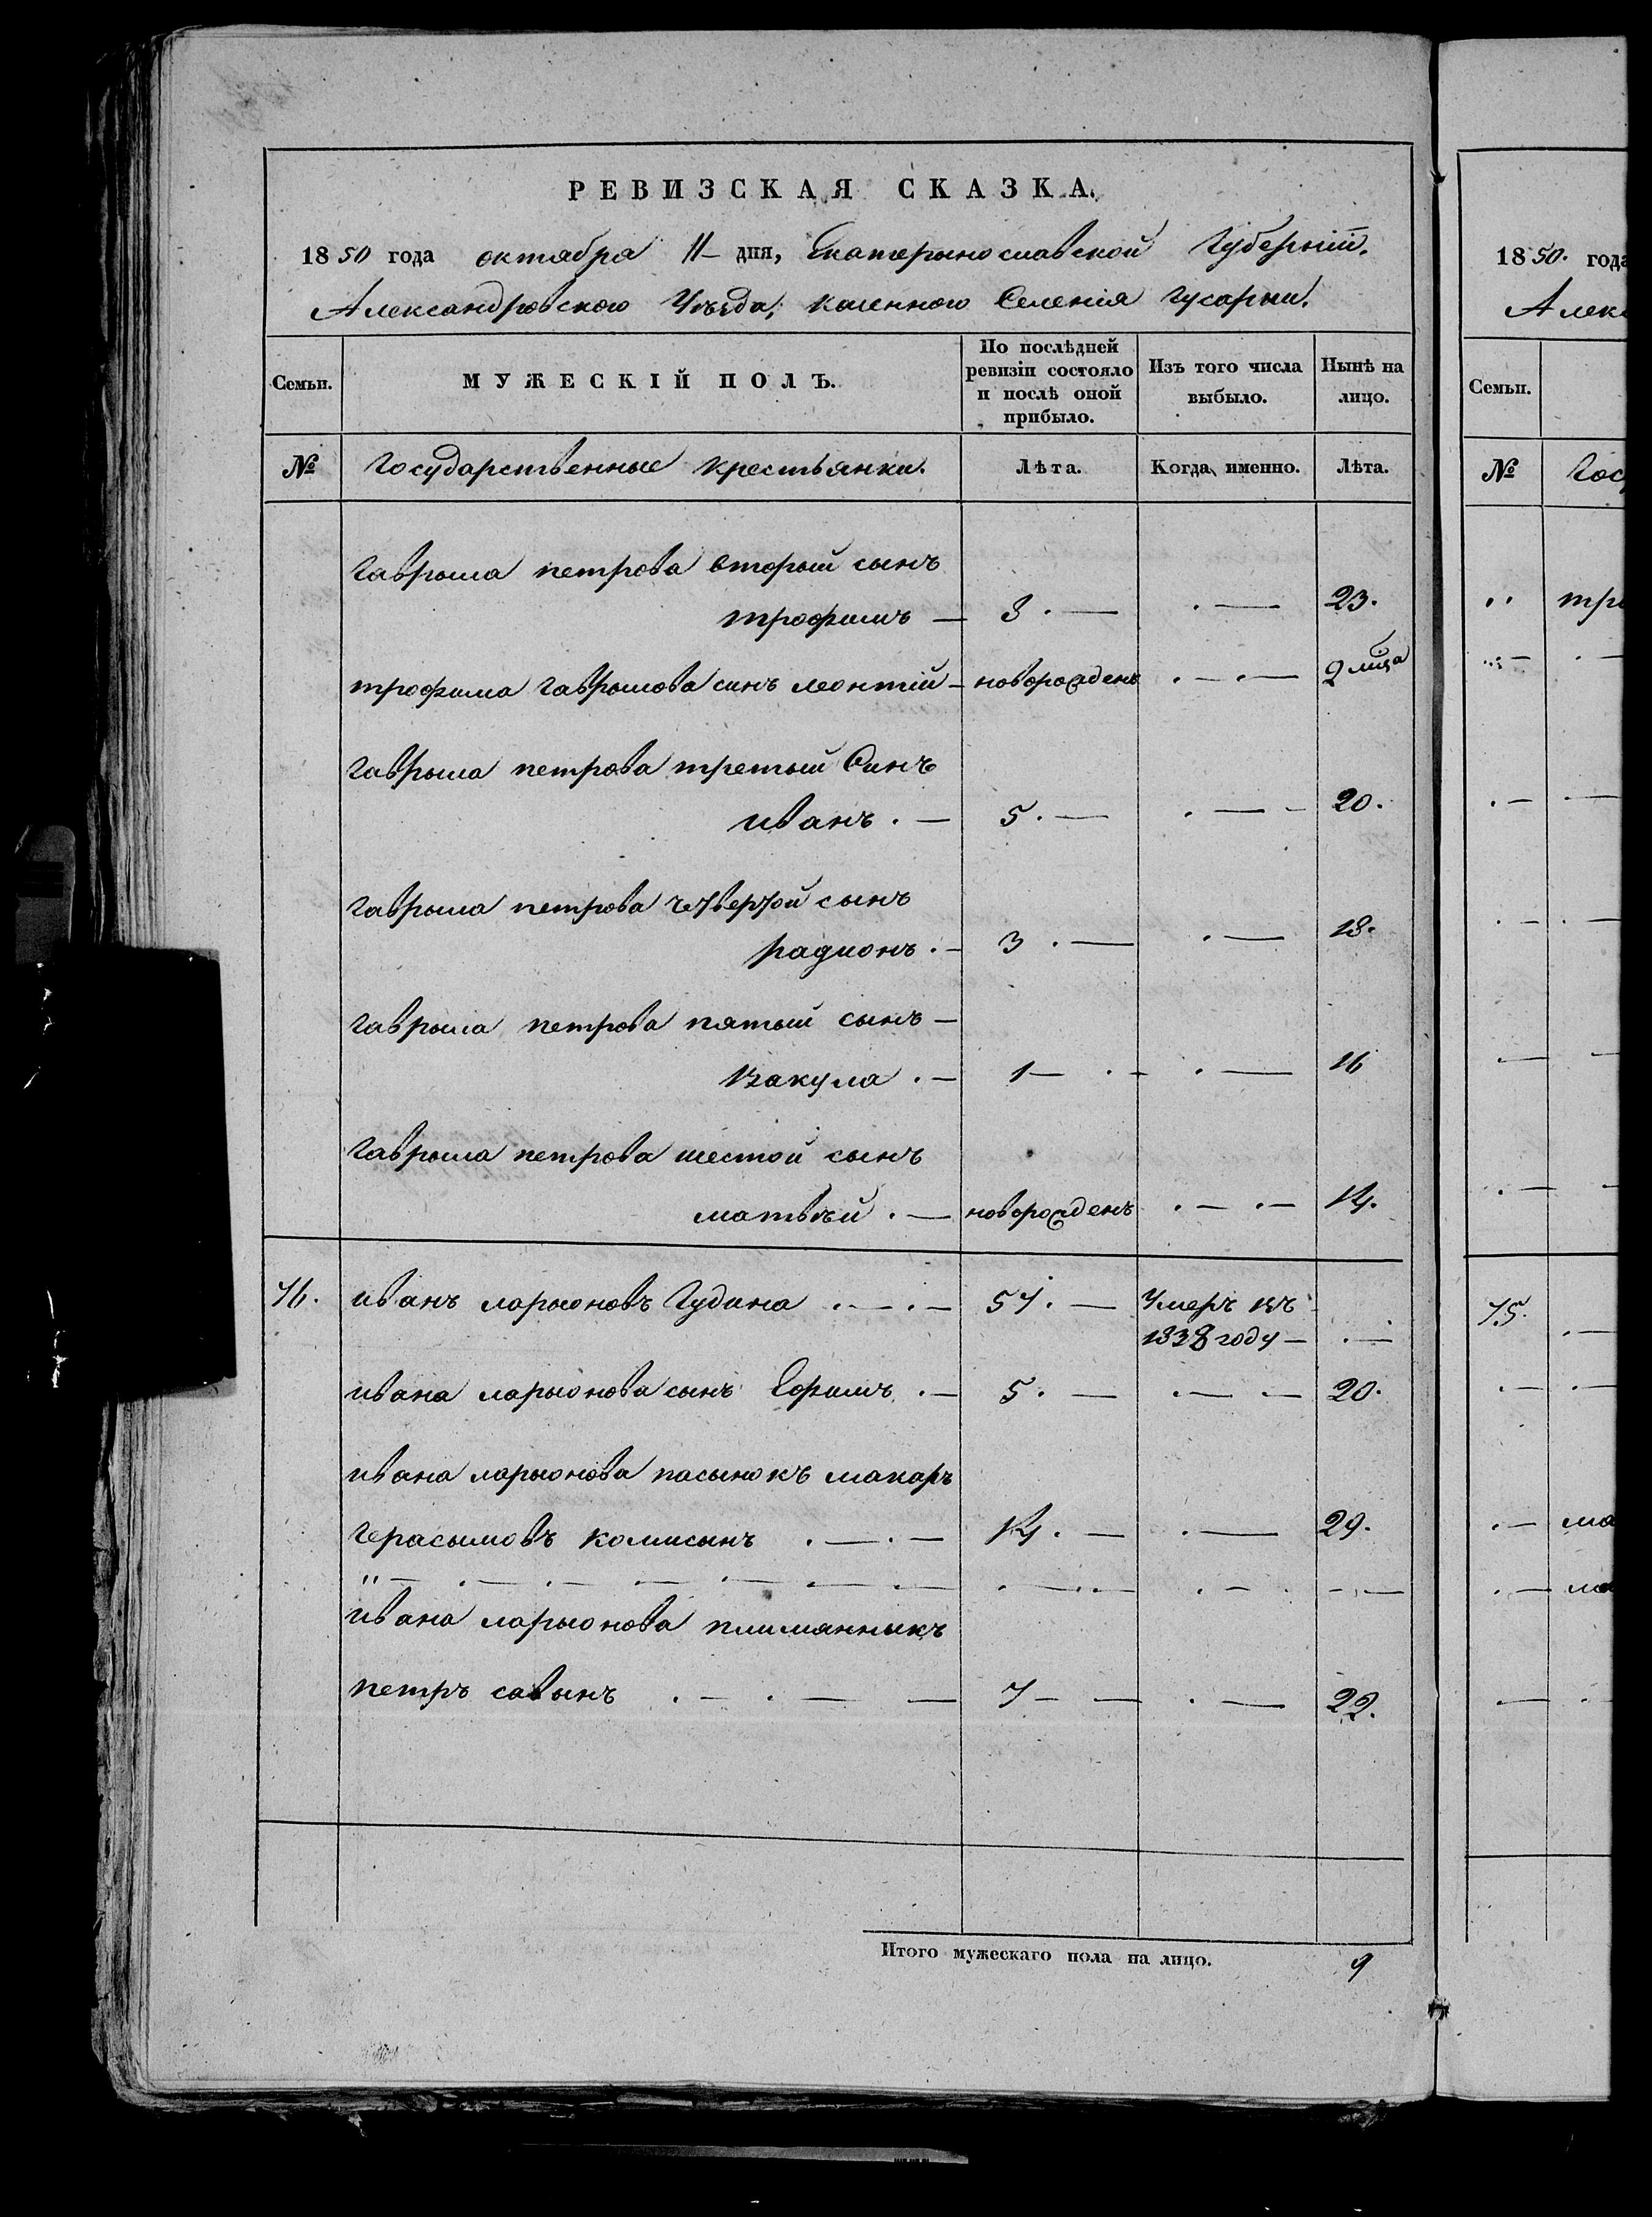 РЕВИЗСКАЯ СКАЗКА.
1850 года октабра 11 дня, Екатерынославской Губерыій.
Александровского Уѣзда, казенного Селенія Гусарыи.
Семьи.
МУЖЕСКІЙ ПОЛЪ.
По послѣдней ревизіи состояло и послѣ оной прибыло.
Изъ того числа выбыло.
Нынѣ на лицо.
№ Государственные крестьянки. Лѣта. Когда именно. Лѣта.
гаврыла петрова вторый сынъ
трофимъ — 8 . — . — 23.
трофима гаврылова синъ леонтій — новорожденъ . — . — 2 мца
гаврыла петрова третый Синъ
иванъ . — 5 . — . — 20.
гаврыла петрова четвертой сынъ
радионъ . — 3 . — . — 18.
гаврыла петрова пятый сынъ —
вакула . — 1 — . — . — 16
гаврыла петрова шестой сынъ
матвѣй . — новорожденъ . — . — 14.
76. иванъ ларыоновъ Гудина . — . — 57 . — Умеръ въ
1838 году — . —
ивана ларыонова сынъ Ефимъ . — 5 . — . — — 20.
ивана ларыонова пасынокъ макаръ
герасымовъ комисынъ . — . — 14 . — . — 29.
ивана ларыонова плимянныкъ
петръ савынъ . — . — — 7 — — . — 22.
Итого мужескаго пола на лицо. 9
1850. года
Алек
Семьи.
№ Гос
" тр
75.
ма